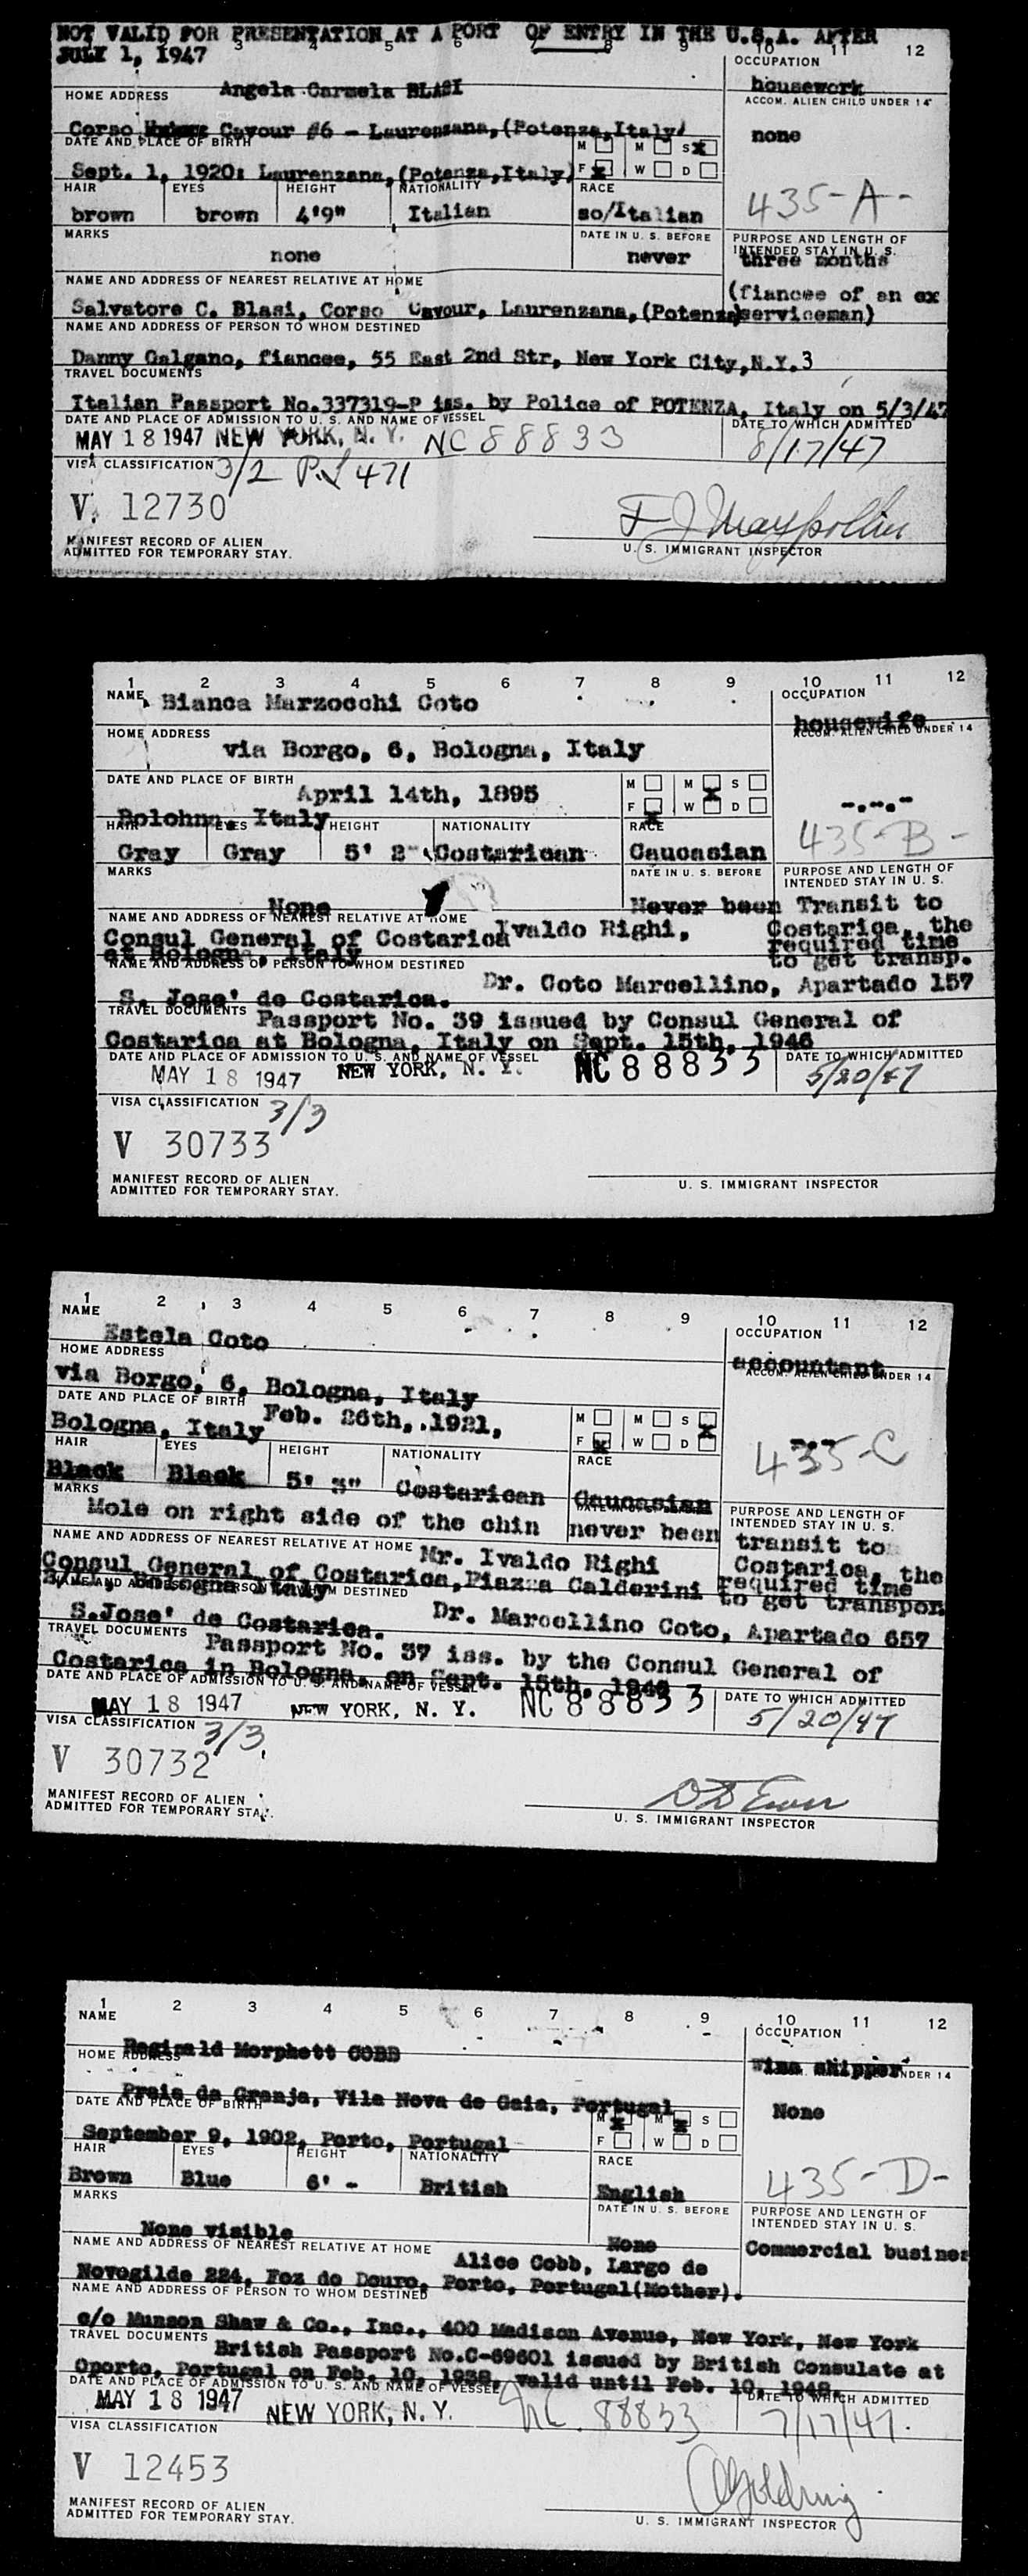 NOT VALID FOR PRESENTATION AT A PORT OF ENTRY IN THE U.S.A. AFTER
JULY 1, 1947
3 4 5 6 7 8 9 10 11 12
OCCUPATION
Angela Carmela BLASI
housework
HOME ADDRESS
ACCOM. ALIEN CHILD UNDER 14
Corso Cavour #6 - Laurenzana,(Potenza,Italy)
none
DATE AND PLACE OF BIRTH
M M S X
Sept. 1, 1920: Laurenzana,(Potenza,Italy)
F X W D
HAIR EYES HEIGHT NATIONALITY RACE
435-A-
brown brown 4'9" Italian so/Italian
MARKS
DATE IN U. S. BEFORE
PURPOSE AND LENGTH OF
INTENDED STAY IN U. S.
none
never
three months
NAME AND ADDRESS OF NEAREST RELATIVE AT HOME
(fiancee of an ex
Salvatore C. Blasi, Corso Cavour, Laurenzana,(Potenza)
serviceman)
NAME AND ADDRESS OF PERSON TO WHOM DESTINED
Danny Galgano, fiancee, 55 East 2nd Str, New York City,N.Y.3
TRAVEL DOCUMENTS
Italian Passport No.337319-P iss. by Police of POTENZA, Italy on 5/3/47
DATE AND PLACE OF ADMISSION TO U. S. AND NAME OF VESSEL
DATE TO WHICH ADMITTED
MAY 18 1947 NEW YORK, N. Y. NC 88833
8/17/47
VISA CLASSIFICATION 3/2 P.L 471
V. 12730
MANIFEST RECORD OF ALIEN
ADMITTED FOR TEMPORARY STAY.
U. S. IMMIGRANT INSPECTOR
1 2 3 4 5 6 7 8 9 10 11 12
NAME Bianca Marzocchi Coto
OCCUPATION
housewife
HOME ADDRESS
ACCOM. ALIEN CHILD UNDER 14
via Borgo, 6, Bologna, Italy
DATE AND PLACE OF BIRTH
April 14th, 1895
M M X S
F X W D
-.-.-
Bolohna, Italy
HAIR EYES HEIGHT NATIONALITY RACE
435-B-
Gray Gray 5' 2" Costarican Caucasian
MARKS
DATE IN U. S. BEFORE
PURPOSE AND LENGTH OF
INTENDED STAY IN U. S.
None
Never been
Transit to
NAME AND ADDRESS OF NEAREST RELATIVE AT HOME
Ivaldo Righi,
Costarica, the
Consul General of Costarica
required time
at Bologna, Italy
to get transp.
NAME AND ADDRESS OF PERSON TO WHOM DESTINED
Dr. Coto Marcellino, Apartado 157
S. Jose' de Costarica.
TRAVEL DOCUMENTS
Passport No. 39 issued by Consul General of
Costarica at Bologna, Italy on Sept. 15th, 1946
DATE AND PLACE OF ADMISSION TO U. S. AND NAME OF VESSEL
DATE TO WHICH ADMITTED
MAY 18 1947 NEW YORK, N. Y. NC 88833
5/20/47
VISA CLASSIFICATION 3/3
V 30733
MANIFEST RECORD OF ALIEN
ADMITTED FOR TEMPORARY STAY.
U. S. IMMIGRANT INSPECTOR
1 2 3 4 5 6 7 8 9 10 11 12
NAME
OCCUPATION
Estela Coto
accountant
HOME ADDRESS
ACCOM. ALIEN CHILD UNDER 14
via Borgo, 6, Bologna, Italy
DATE AND PLACE OF BIRTH
Feb. 26th, 1921,
M M S X
Bologna, Italy
F X W D
435-C
HAIR EYES HEIGHT NATIONALITY RACE
Black Black 5' 3" Costarican Caucasian
MARKS
PURPOSE AND LENGTH OF
INTENDED STAY IN U. S.
Mole on right side of the chin
never been
transit to
NAME AND ADDRESS OF NEAREST RELATIVE AT HOME
Mr. Ivaldo Righi
Costarica, the
Consul General of Costarica,Piazza Calderini
required time
Bologna Italy
to get transpor
NAME AND ADDRESS OF PERSON TO WHOM DESTINED
Dr. Marcellino Coto, Apartado 657
S.Jose' de Costarica.
TRAVEL DOCUMENTS
Passport No. 37 iss. by the Consul General of
Costarica in Bologna, on Sept. 15th, 1946
DATE AND PLACE OF ADMISSION TO U. S. AND NAME OF VESSEL
DATE TO WHICH ADMITTED
MAY 18 1947 NEW YORK, N. Y. NC 88833
5/20/47
VISA CLASSIFICATION 3/3
V 30732
MANIFEST RECORD OF ALIEN
ADMITTED FOR TEMPORARY STAY.
U. S. IMMIGRANT INSPECTOR
1 2 3 4 5 6 7 8 9 10 11 12
NAME
OCCUPATION
Reginald Morphett COBB
Wine shipper
HOME ADDRESS
UNDER 14
Praia da Granja, Vila Nova de Gaia, Portugal
None
DATE AND PLACE OF BIRTH
M X M X S
September 9, 1902, Porto, Portugal
F W D
HAIR EYES HEIGHT NATIONALITY RACE
435-D-
Brown Blue 6' - British English
MARKS
DATE IN U. S. BEFORE
PURPOSE AND LENGTH OF
INTENDED STAY IN U. S.
None visible
None
Commercial busines
NAME AND ADDRESS OF NEAREST RELATIVE AT HOME
Alice Cobb, Largo de
Novogilde 224, Foz do Douro, Porto, Portugal(Mother).
NAME AND ADDRESS OF PERSON TO WHOM DESTINED
c/o Munson Shaw & Co., Inc., 400 Madison Avenue, New York, New York
TRAVEL DOCUMENTS
British Passport No.C-69601 issued by British Consulate at
Oporto, Portugal on Feb. 10, 1938, valid until Feb. 10, 1948.
DATE AND PLACE OF ADMISSION TO U. S. AND NAME OF VESSEL
DATE TO WHICH ADMITTED
MAY 18 1947 NEW YORK, N. Y. NC 88833
7/17/47.
VISA CLASSIFICATION
V 12453
MANIFEST RECORD OF ALIEN
ADMITTED FOR TEMPORARY STAY.
U. S. IMMIGRANT INSPECTOR